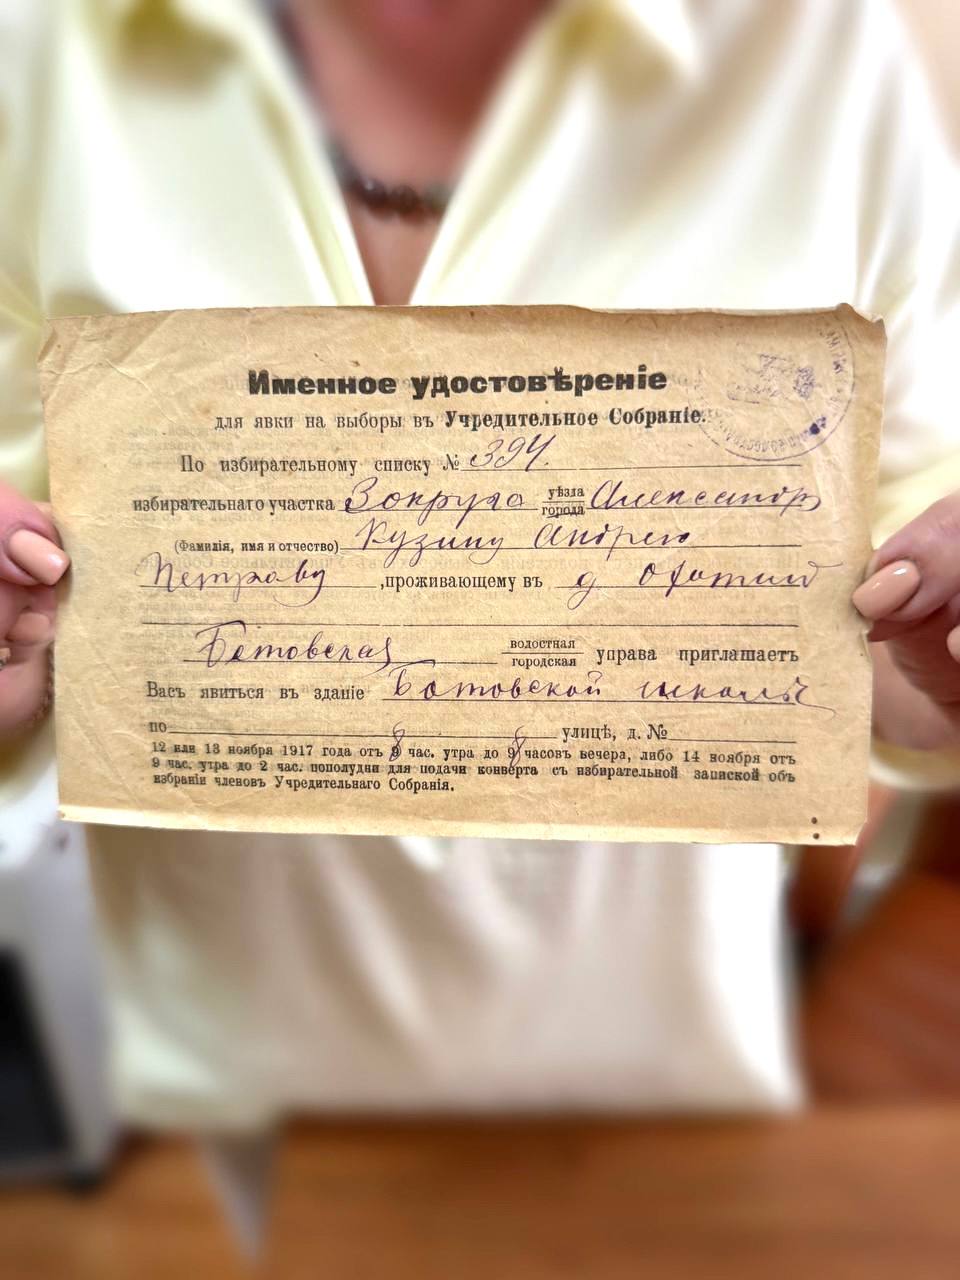 Именное удостовѣреніе
для явки на выборы въ Учредительное Собраніе.
По избирательному списку № 394.
избирательнаго участка 3 округа уѣзда Александр
города
(Фамилія, имя и отчество) Кузину Андрею
Петрову ,проживающему въ д
Ботовская волостная управа приглашаетъ
городская
Васъ явиться въ зданіе Ботовской школы
по улицѣ, д. №
12 или 13 ноября 1917 года отъ 8 час. утра до 9 часовъ вечера, либо 14 ноября отъ
9 час. утра до 2 час. пополудни для подачи конверта съ избирательной запиской объ
избраніи членовъ Учредительнаго Собранія.